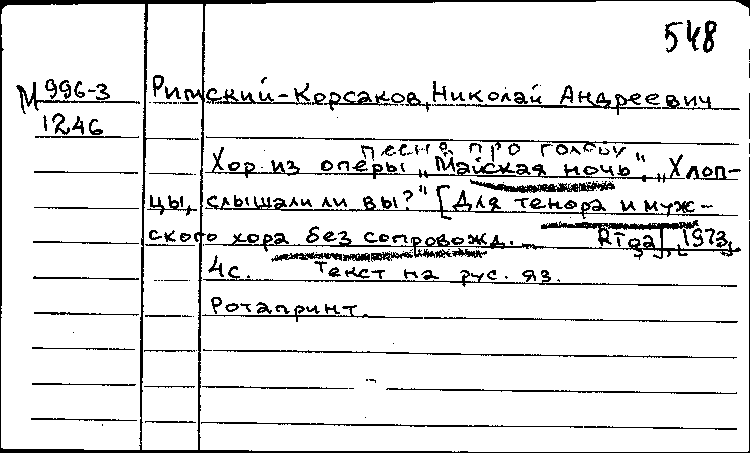 548
М 996-3 Римский-Корсаков, Николай Андреевич
1246
песня про голову
Хор из оперы „Майская ночь". „Хлоп-
цы, слышали ли вы?" [Для тенора и муж-
ского хора без сопровожд. Rīga], [1973]
4с. Текст на рус. яз.
Ротапринт.